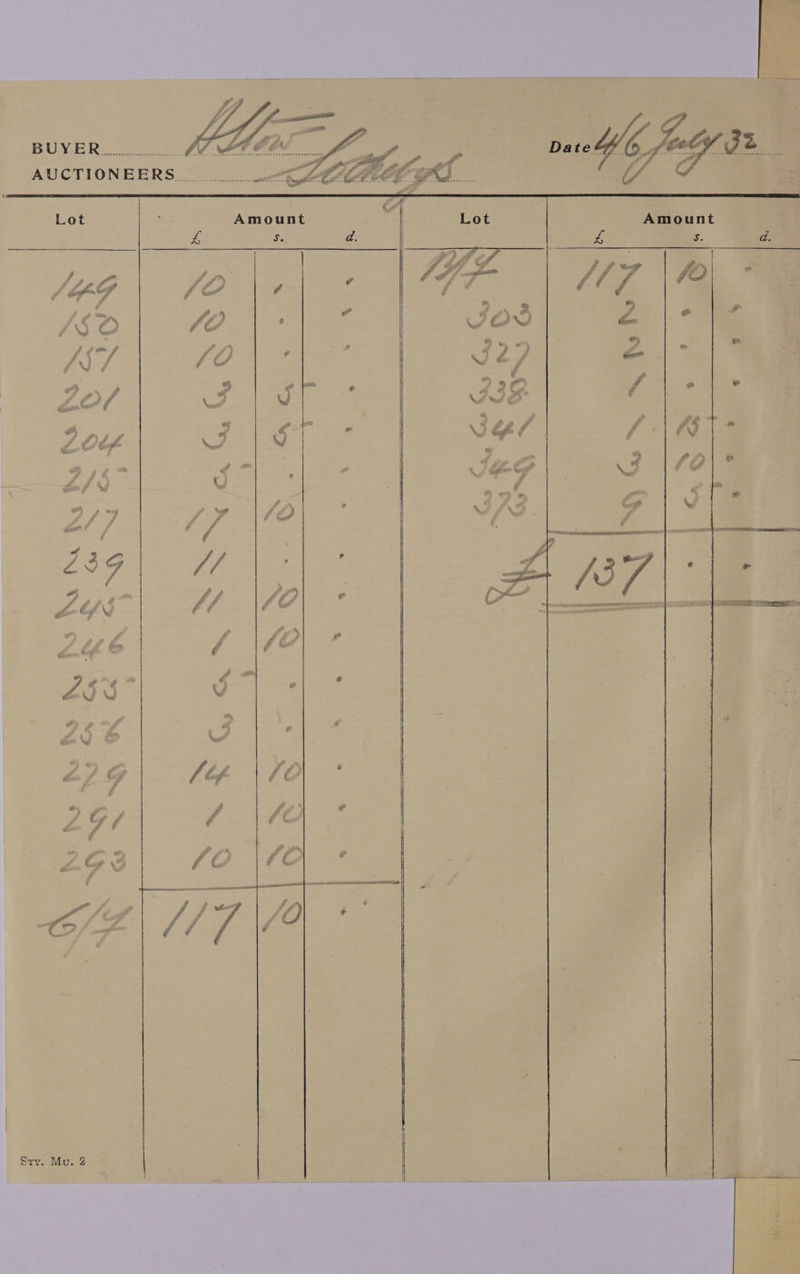 BUYER Date 4/6 July 32
AUCTIONEERS
Lot Amount Lot Amount
£ s. d. £ s. d.
149 10 - - B/F 117 10 -
150 10 - - 303 2 - -
157 10 - - 327 2 - -
201 3 5 - 338 1 - -
204 3 5 - 341 1 15 -
215 5 - - 349 3 10 -
217 17 10 - 373 9 5 -
239 11 - - £ 137 - -
245 11 10 -
246 1 10 -
255 5 - -
256 3 - -
279 14 10 -
291 1 10 -
293 10 10 -
C/F 117 10 -
Sty. Mu. 2